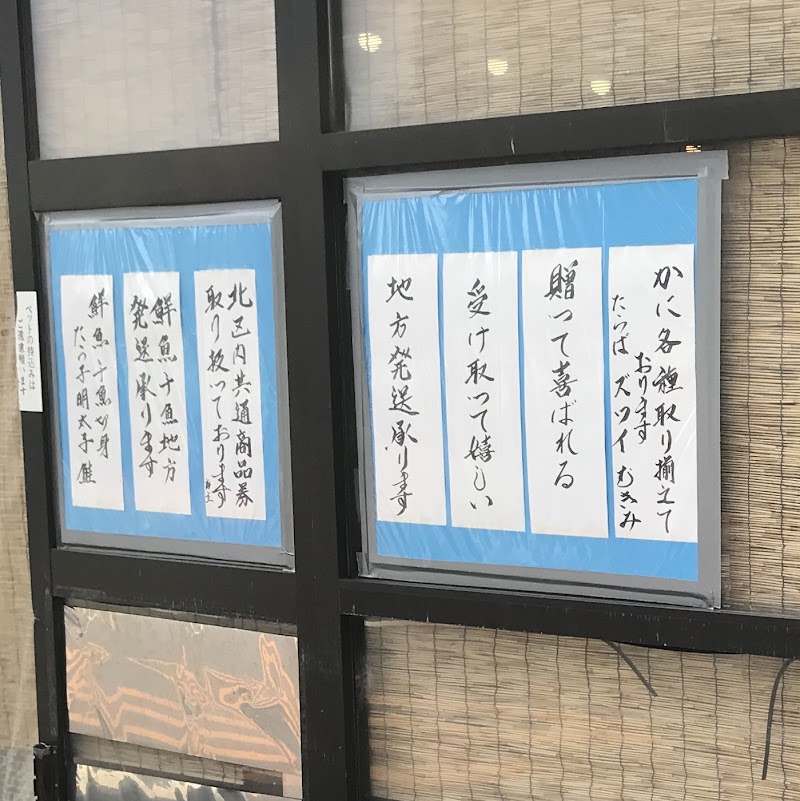 かに各種取り揃えて
おります
たらば ズワイ むきみ
贈って喜ばれる
受け取って嬉しい
地方発送承ります
北区内共通商品券
取り扱っております
鮮魚干魚地方
発送承ります
鮮魚干魚切身
たらこ明太子鮭
ペットの持込みは
ご遠慮願います